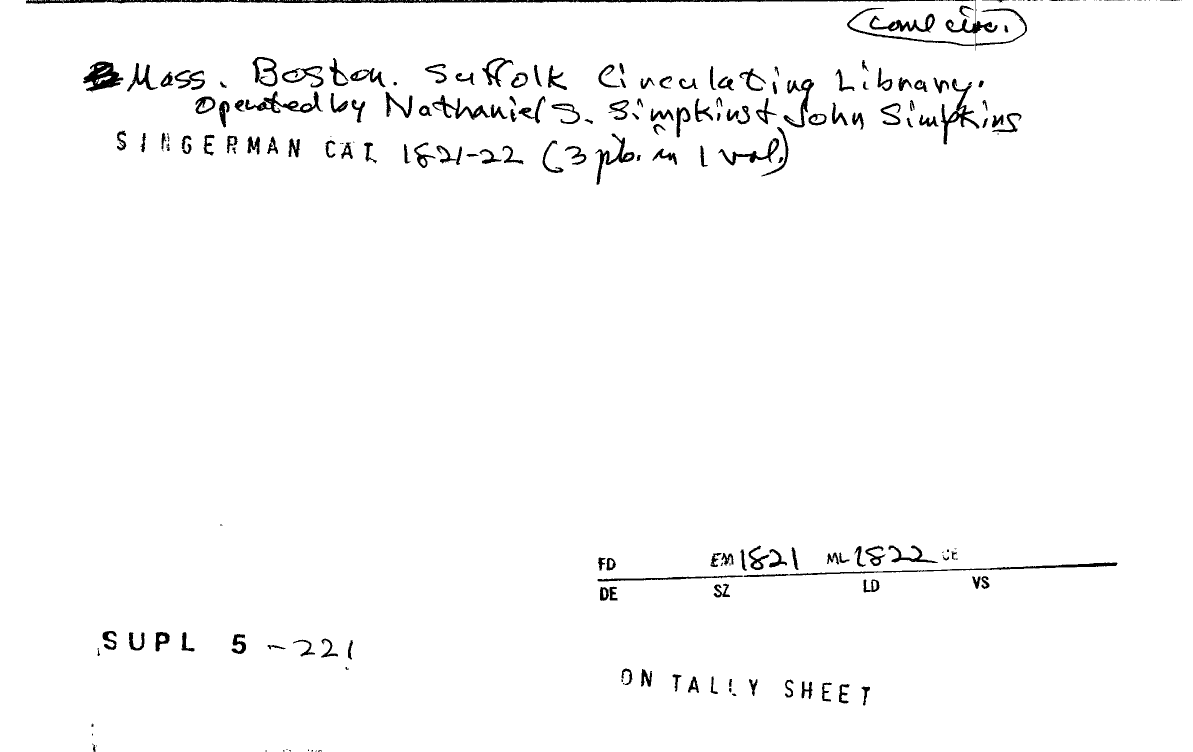 Coml circ.
Mass. Boston. Suffolk Circulating Library.
Operated by Nathaniel S. Simpkins & John Simpkins
SINGERMAN CAT. 1821-22 (3 pts. in 1 vol.)
FD EM 1821 ML 1822 CE
DE SZ LD VS
SUPL 5 - 221
ON TALLY SHEET